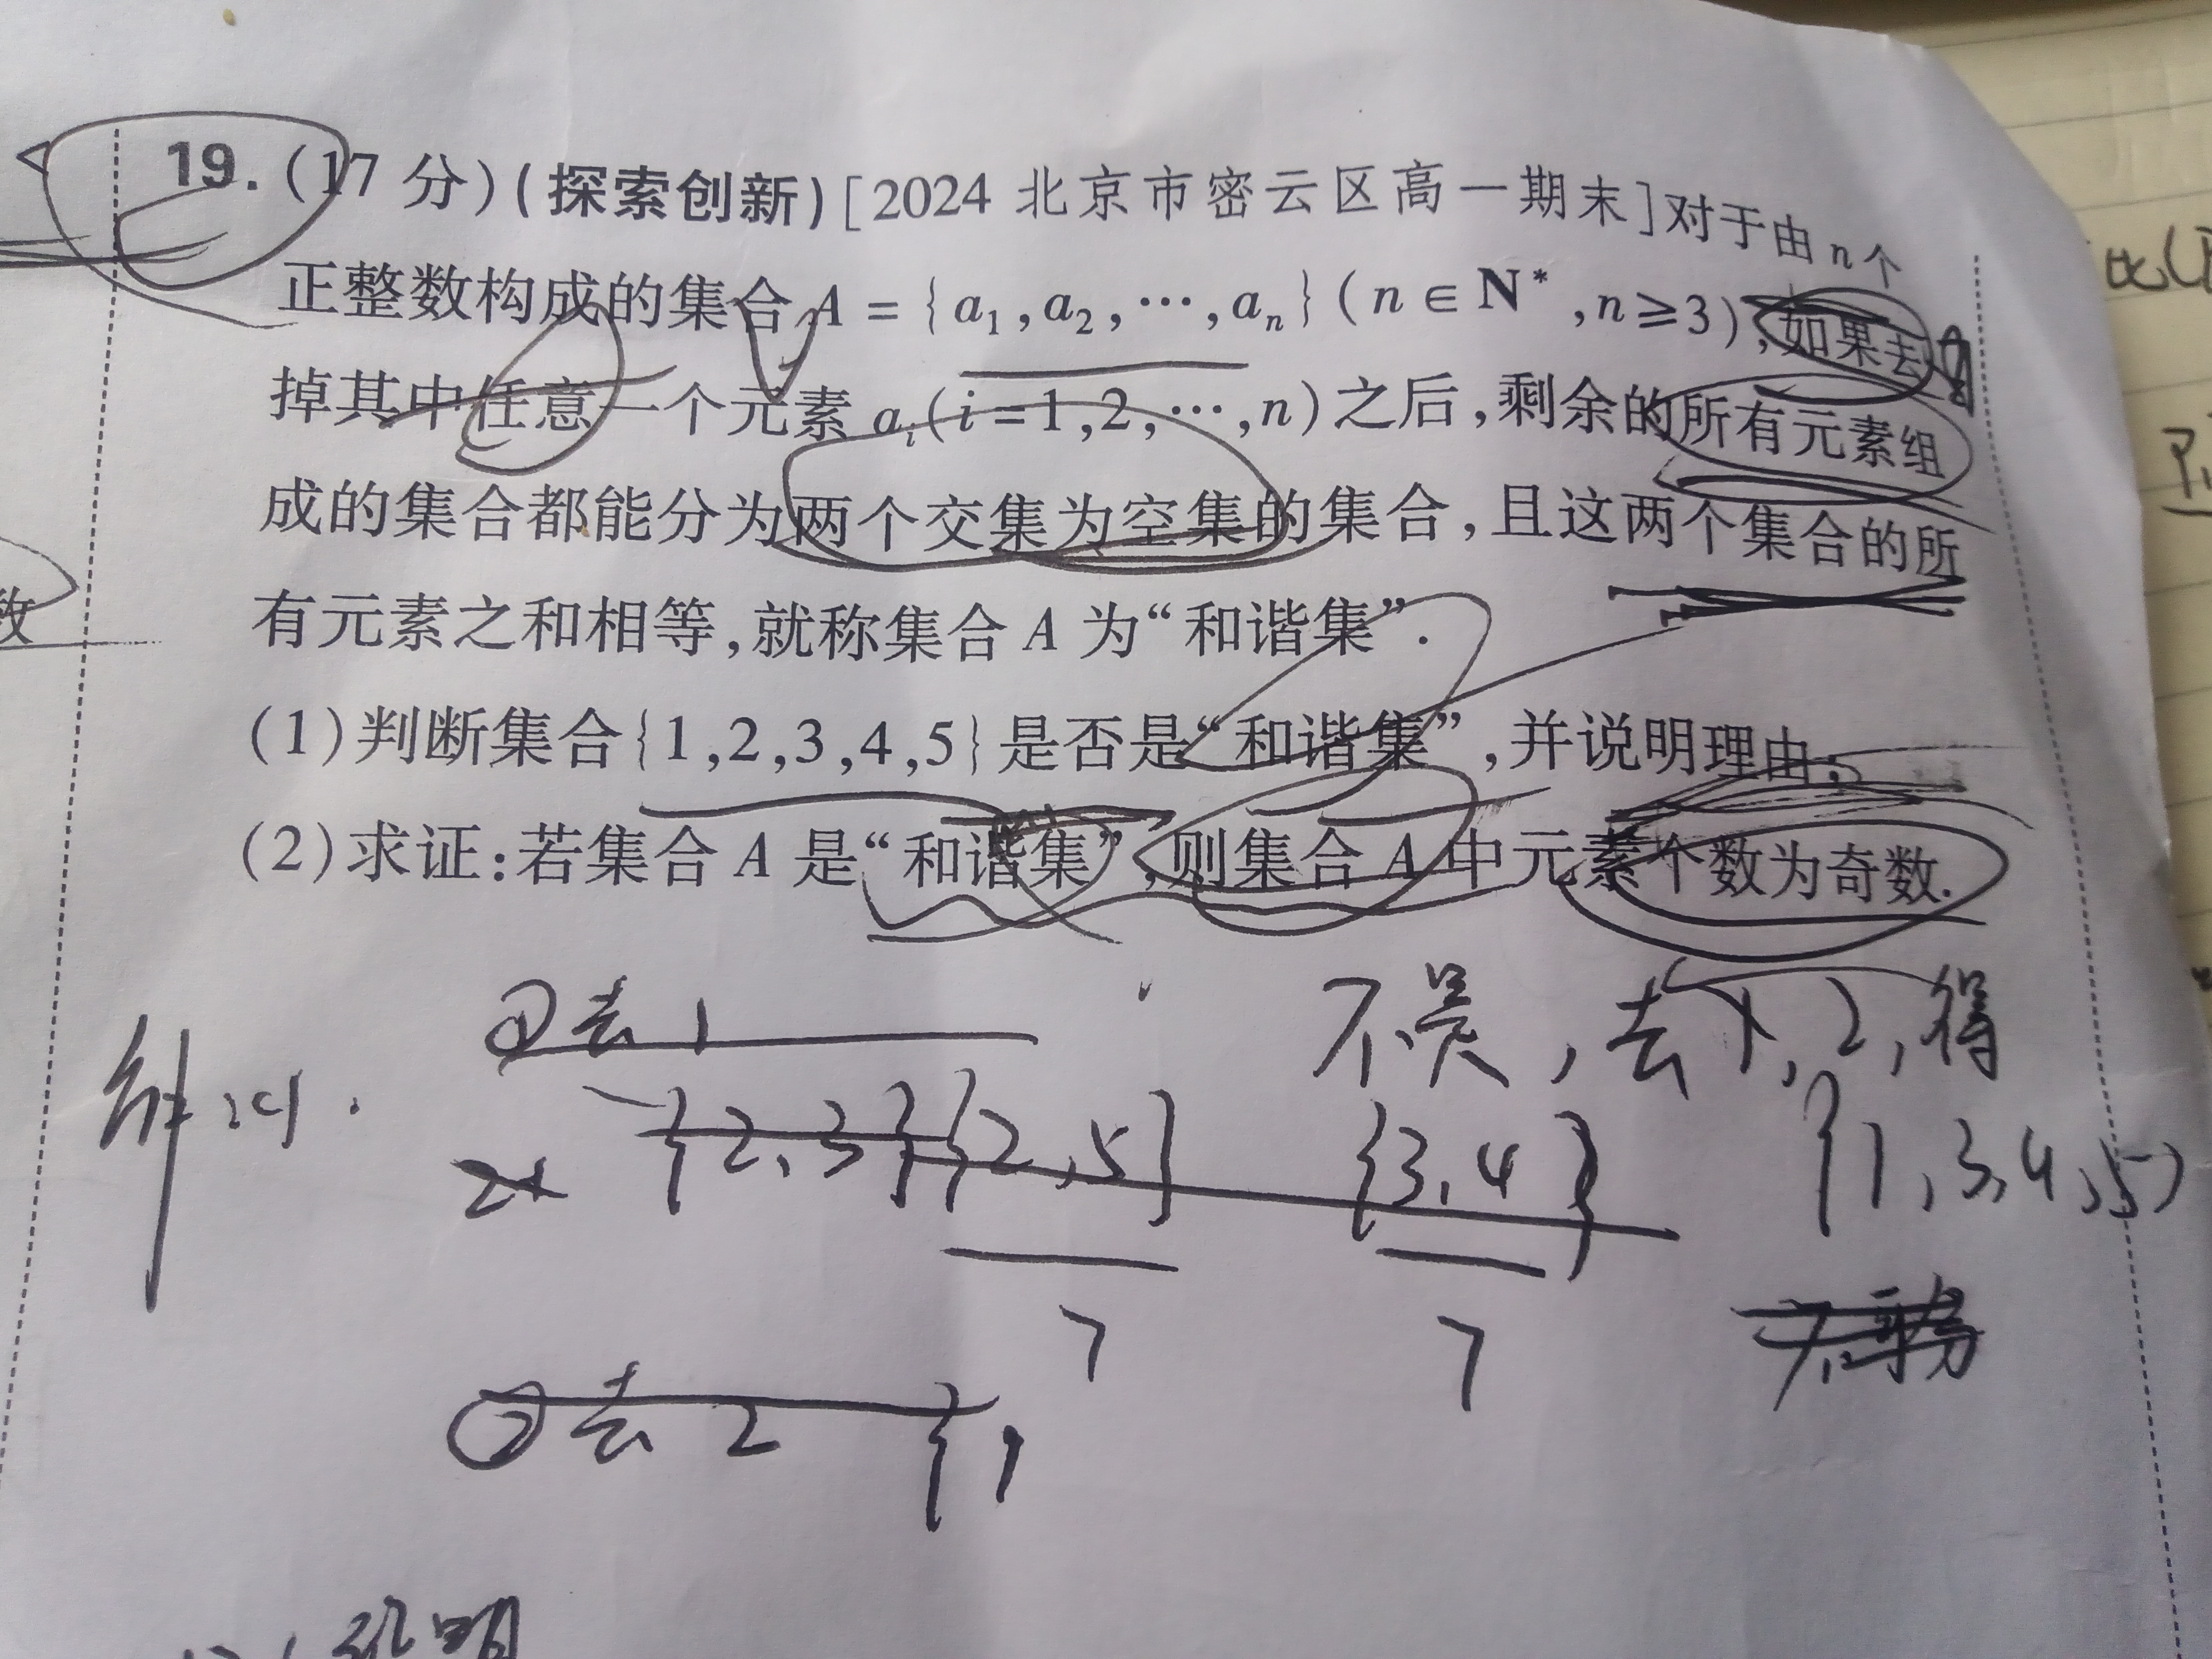 19.(17 分)(探索创新)[2024 北京市密云区高一期末]对于由 n 个
正整数构成的集合 A = {a₁,a₂,…,aₙ}(n∈N*,n≥3),如果去
掉其中任意一个元素 aᵢ(i=1,2,…,n)之后,剩余的所有元素组
成的集合都能分为两个交集为空集的集合,且这两个集合的所
有元素之和相等,就称集合 A 为“和谐集”.
(1)判断集合{1,2,3,4,5}是否是“和谐集”,并说明理由;
(2)求证:若集合 A 是“和谐集”,则集合 A 中元素个数为奇数.
①去 1
不是,去 1,2,得
{2,3}{2,5} {3,4} {1,3,4,5}
7 7
②去 2 {1
证明
数